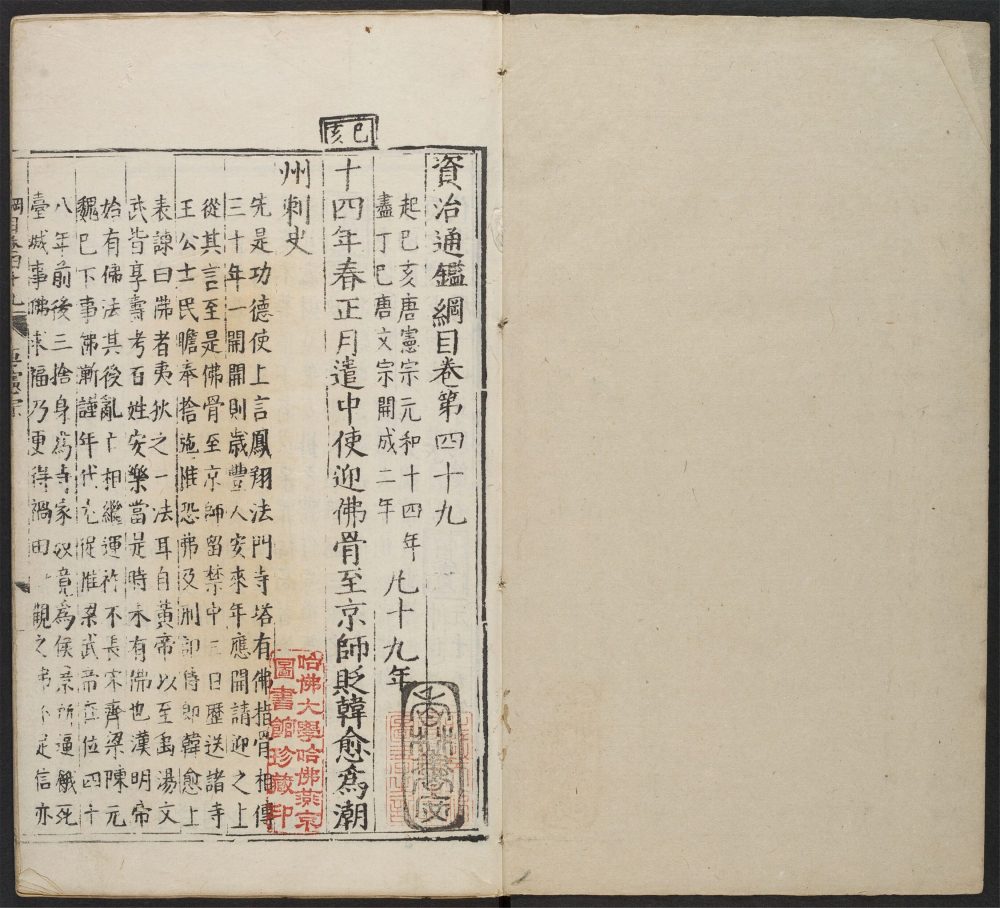 己亥
資治通鑑綱目卷第四十九
起己亥唐憲宗元和十四年
盡丁巳唐文宗開成二年
凡十九年
十四年春正月遣中使迎佛骨至京師貶韓愈爲潮
州刺史
先是功德使上言鳳翔法門寺塔有佛指骨相傳
三十年一開開則歲豐人安來年應開請迎之上
從其言至是佛骨至京師留禁中三日歷送諸寺
王公士民瞻奉捨施惟恐弗及刑部侍郎韓愈上
表諫曰佛者夷狄之一法耳自黃帝以至禹湯文
武皆享壽考百姓安樂當是時未有佛也漢明帝
始有佛法其後亂亡相繼運祚不長宋齊梁陳元
魏已下事佛漸謹年代尤促惟梁武帝在位四十
八年前後三捨身爲寺家奴竟爲侯景所逼餓死
臺城事佛求福乃更得禍由觀之佛不足信亦
綱目卷四十九
唐憲宗
哈佛大學哈佛燕京
圖書館珍藏印